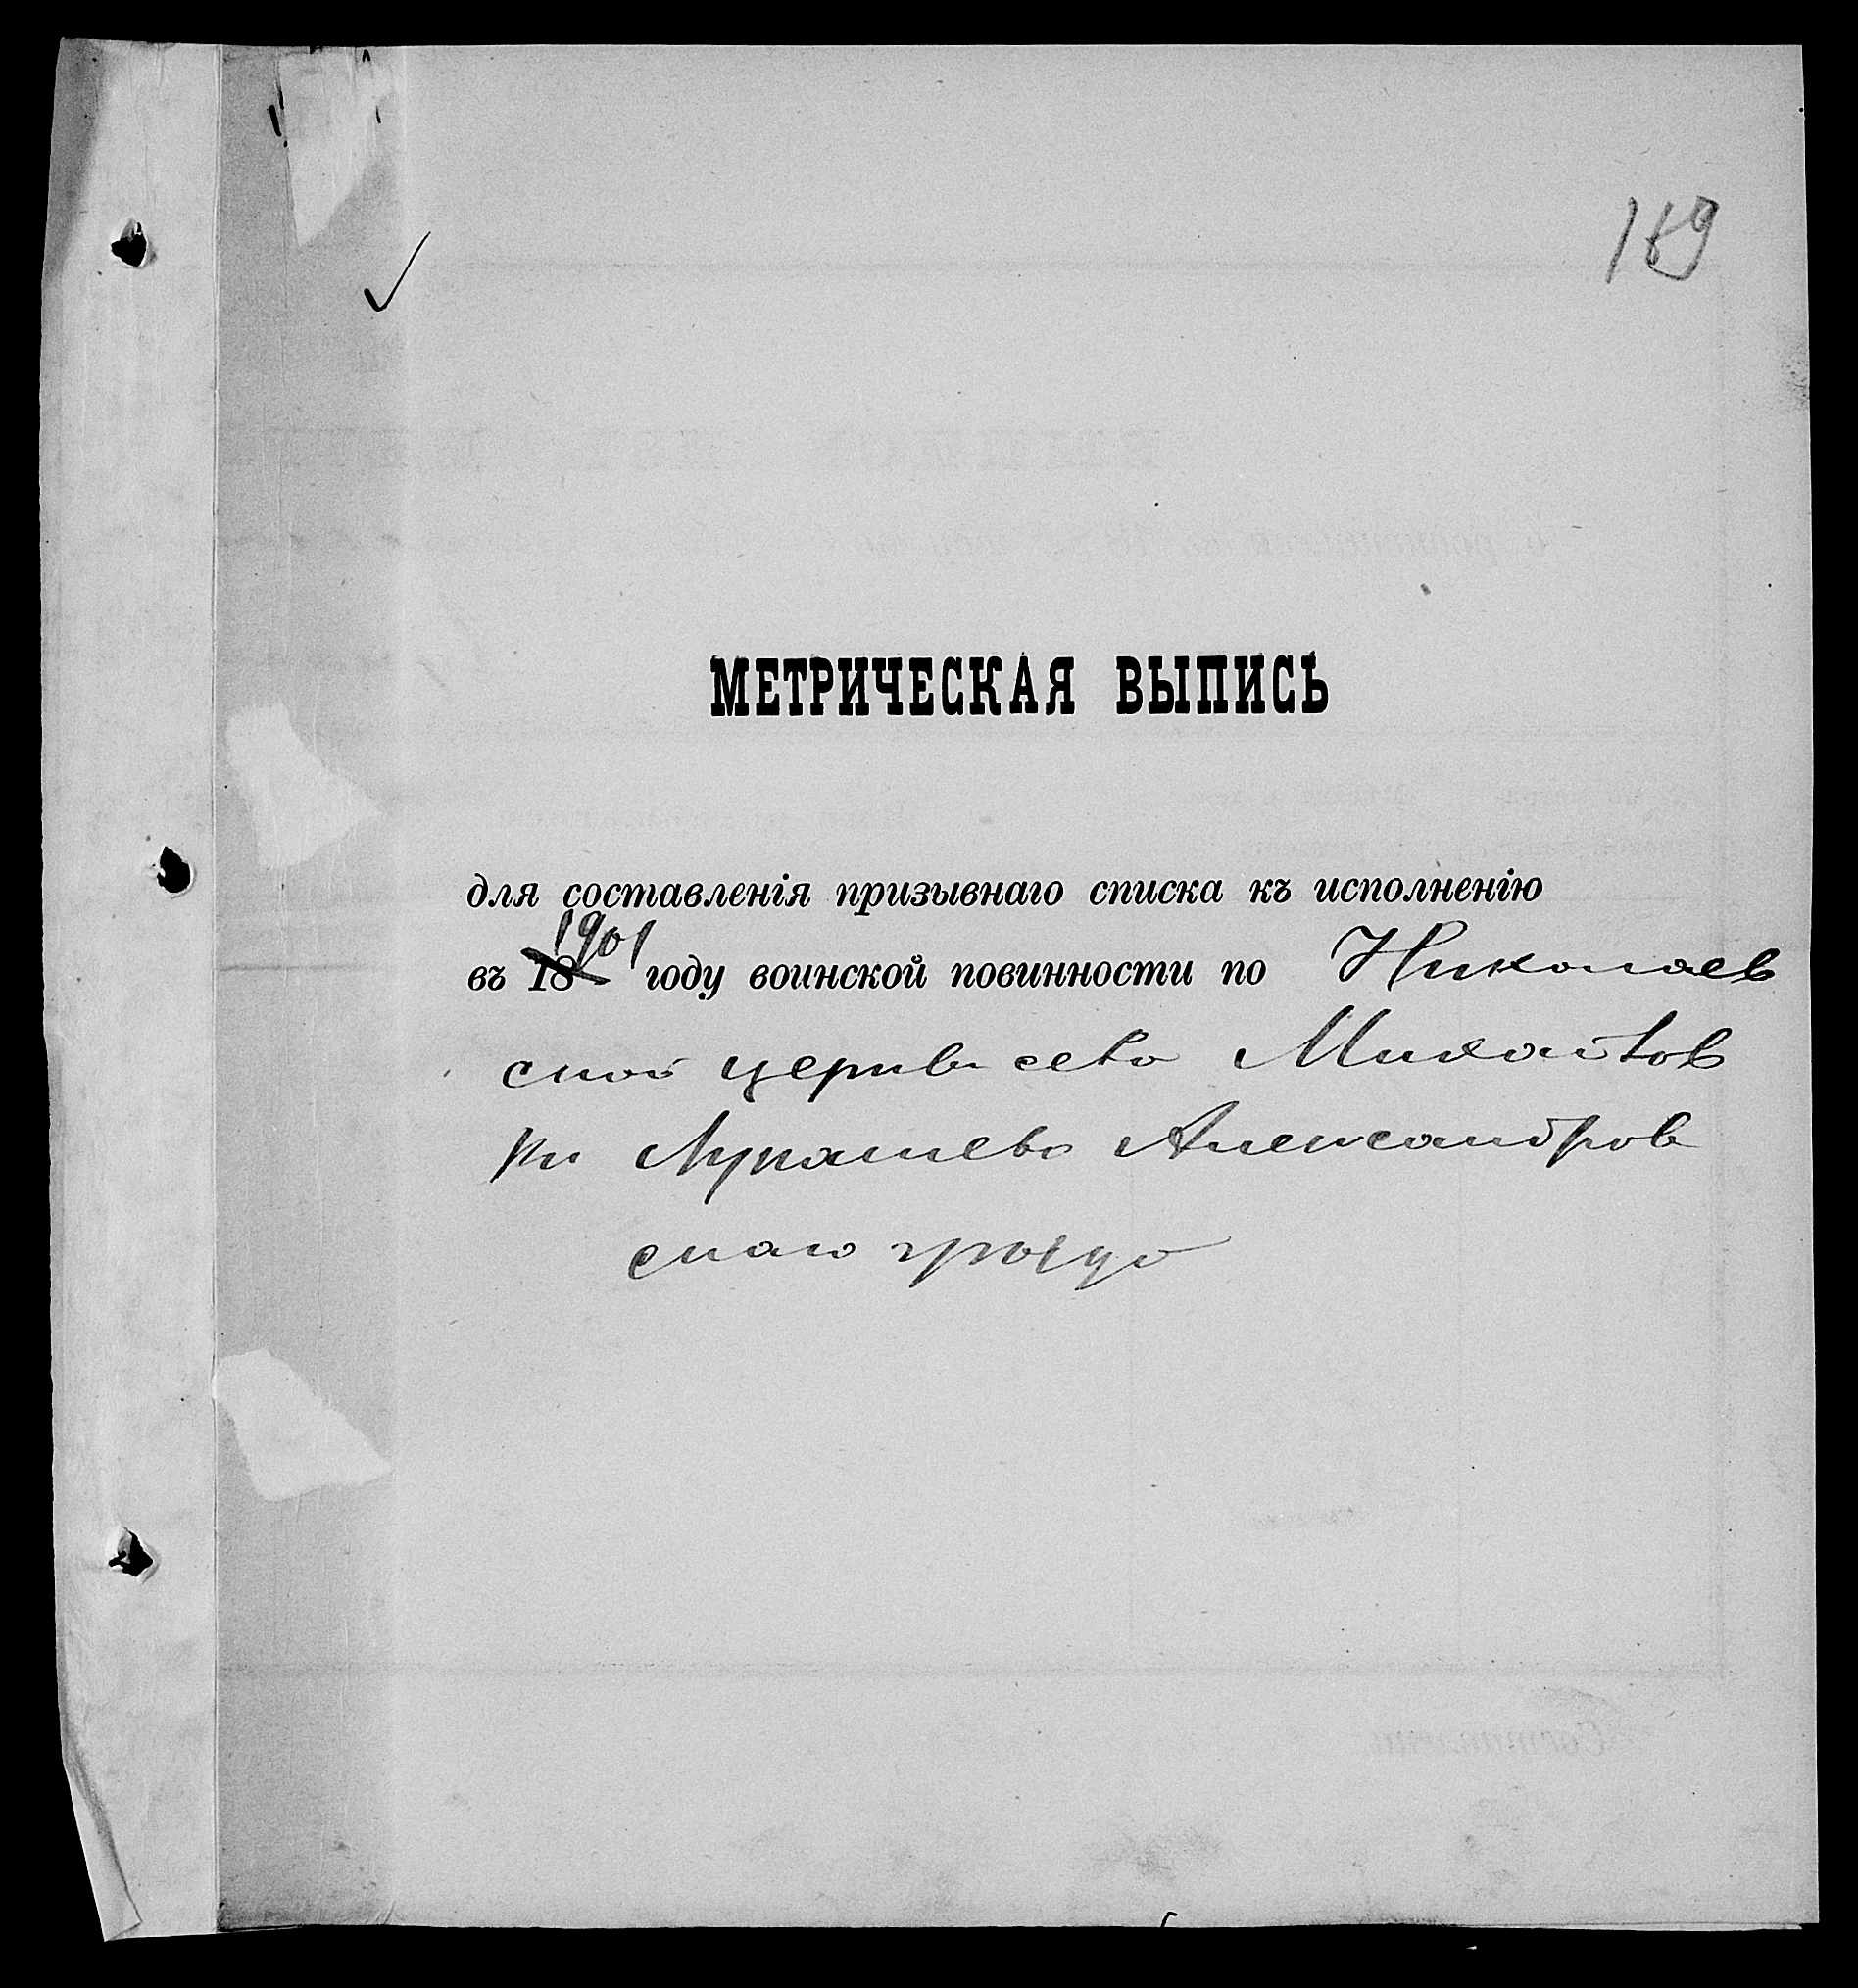 169
МЕТРИЧЕСКАЯ ВЫПИСЬ
для составленія призывнаго списка къ исполненію
въ 18 1901 году воинской повинности по Николаев
ской церкви села Михайлов
ки Лукашево Александров
скаго уѣзда